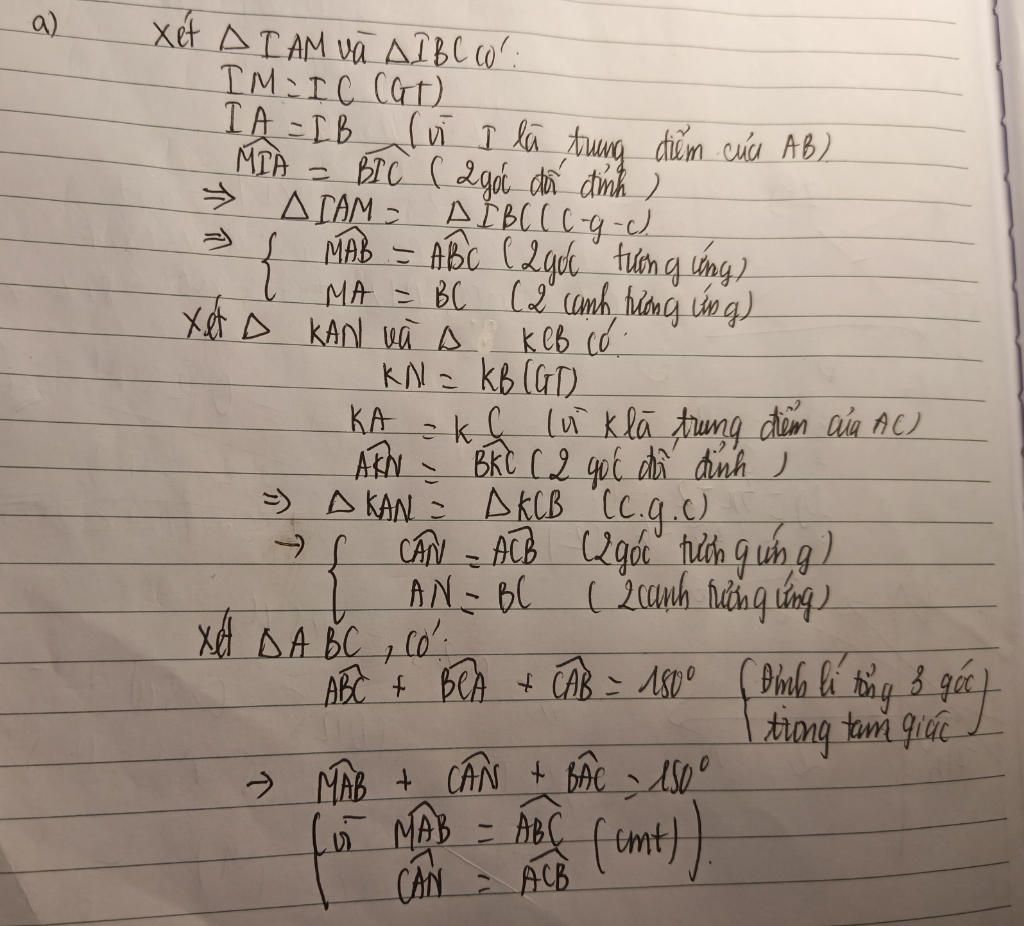 a) Xét Δ IAM và Δ IBC có:
IM = IC (GT)
IA = IB (vì I là trung điểm của AB)
\widehat{MIA} = \widehat{BIC} (2 góc đối đỉnh)
⇒ Δ IAM = Δ IBC (c-g-c)
⇒ { \widehat{MAB} = \widehat{ABC} (2 góc tương ứng)
MA = BC (2 cạnh tương ứng)
Xét Δ KAN và Δ KCB có:
KN = KB (GT)
KA = KC (vì K là trung điểm của AC)
\widehat{AKN} = \widehat{BKC} (2 góc đối đỉnh)
⇒ Δ KAN = Δ KCB (c.g.c)
→ { \widehat{CAN} = \widehat{ACB} (2 góc tương ứng)
AN = BC (2 cạnh tương ứng)
Xét Δ ABC, có:
\widehat{ABC} + \widehat{BCA} + \widehat{CAB} = 180° (Định lí tổng 3 góc
trong tam giác)
→ \widehat{MAB} + \widehat{CAN} + \widehat{BAC} = 180°
(vì \widehat{MAB} = \widehat{ABC} (cmt)
\widehat{CAN} = \widehat{ACB} ).